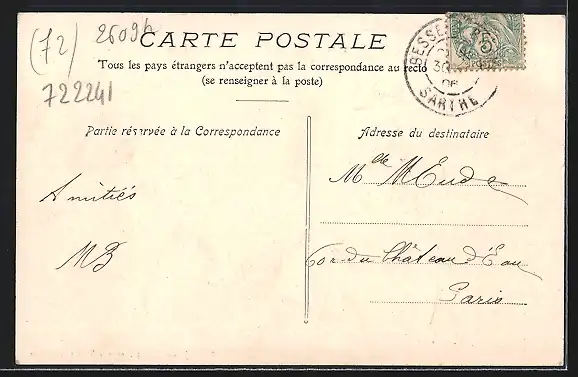 (72) 26094
CARTE POSTALE
Tous les pays étrangers n'acceptent pas la correspondance au recto
(se renseigner à la poste)
722241
BESSE
30
06
SARTHE
5
Partie réservée à la Correspondance
Adresse du destinataire
Amitiés
MB
Mlle M Eude
60 r. du Château d'Eau
Paris